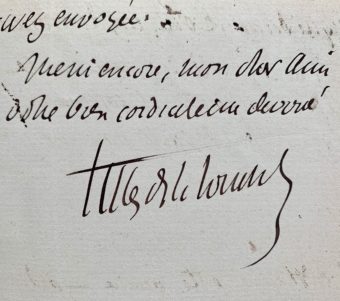 avez envoyée.
Merci encore, mon cher ami
votre bien cordialement dévoué